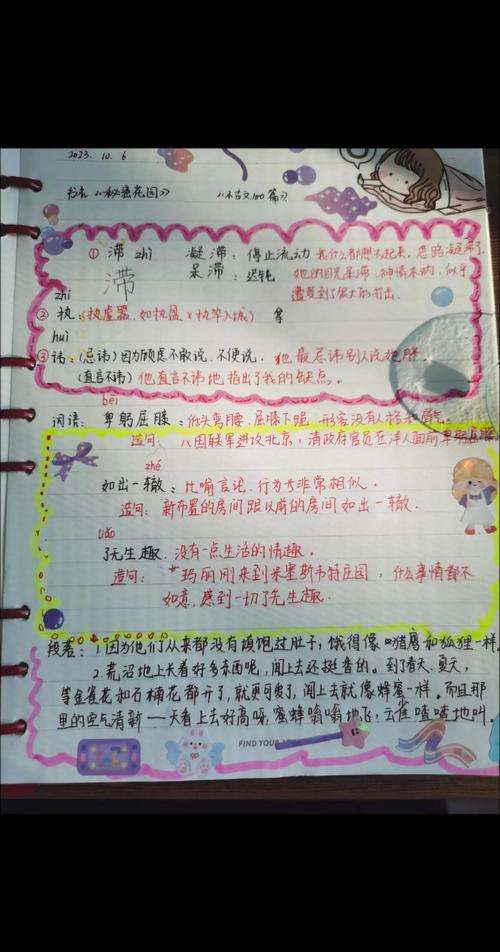 2023. 10. 6
书名《秘密花园》 《小古文100篇》
① 滞 zhì 凝滞：停止流动 我什么都想不起来，思路凝滞了
滞 呆滞：迟钝 她的目光呆滞，神情木讷，似乎
遭受到了很大的打击．
zhí
② 执：(执虎器．如执盈 执竿入城) 拿
huì
③ 讳：(忌讳)因为顾虑不敢说、不便说， 他最忌讳别人说他胖．
(直言不讳) 他直言不讳地指出了我的缺点。
bēi
词语： 卑躬屈膝：低头弯腰，屈膝下跪．形容没有人格和骨气
造句： 八国联军进攻北京，清政府官员在洋人面前卑躬屈膝
zhé
如出一辙：比喻言论、行为非常相似。
造句：新布置的房间跟以前的房间如出一辙．
liǎo
了无生趣．没有一点生活的情趣。
造句：玛丽刚来到米塞斯韦特庄园，什么事情都不
如意，感到一切了无生趣．
段落：1.因为他们从来都没有填饱过肚子，饿得像猎鹰和狐狸一样
2.荒沼地上长着好多东西呢，闻上去还挺香的。到了春天、夏天，
等金雀花和石楠花都开了，就更可爱了，闻上去就像蜂蜜一样。而且那
里的空气清新——天看上去好高呀，蜜蜂嗡嗡地飞，云雀喳喳地叫。
FIND YOUR